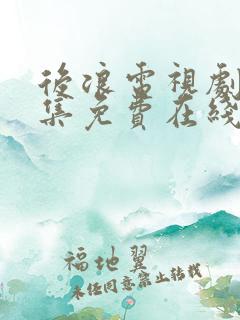 後浪電視劇
集免費在綫
福地翼
未經同意禁止轉載